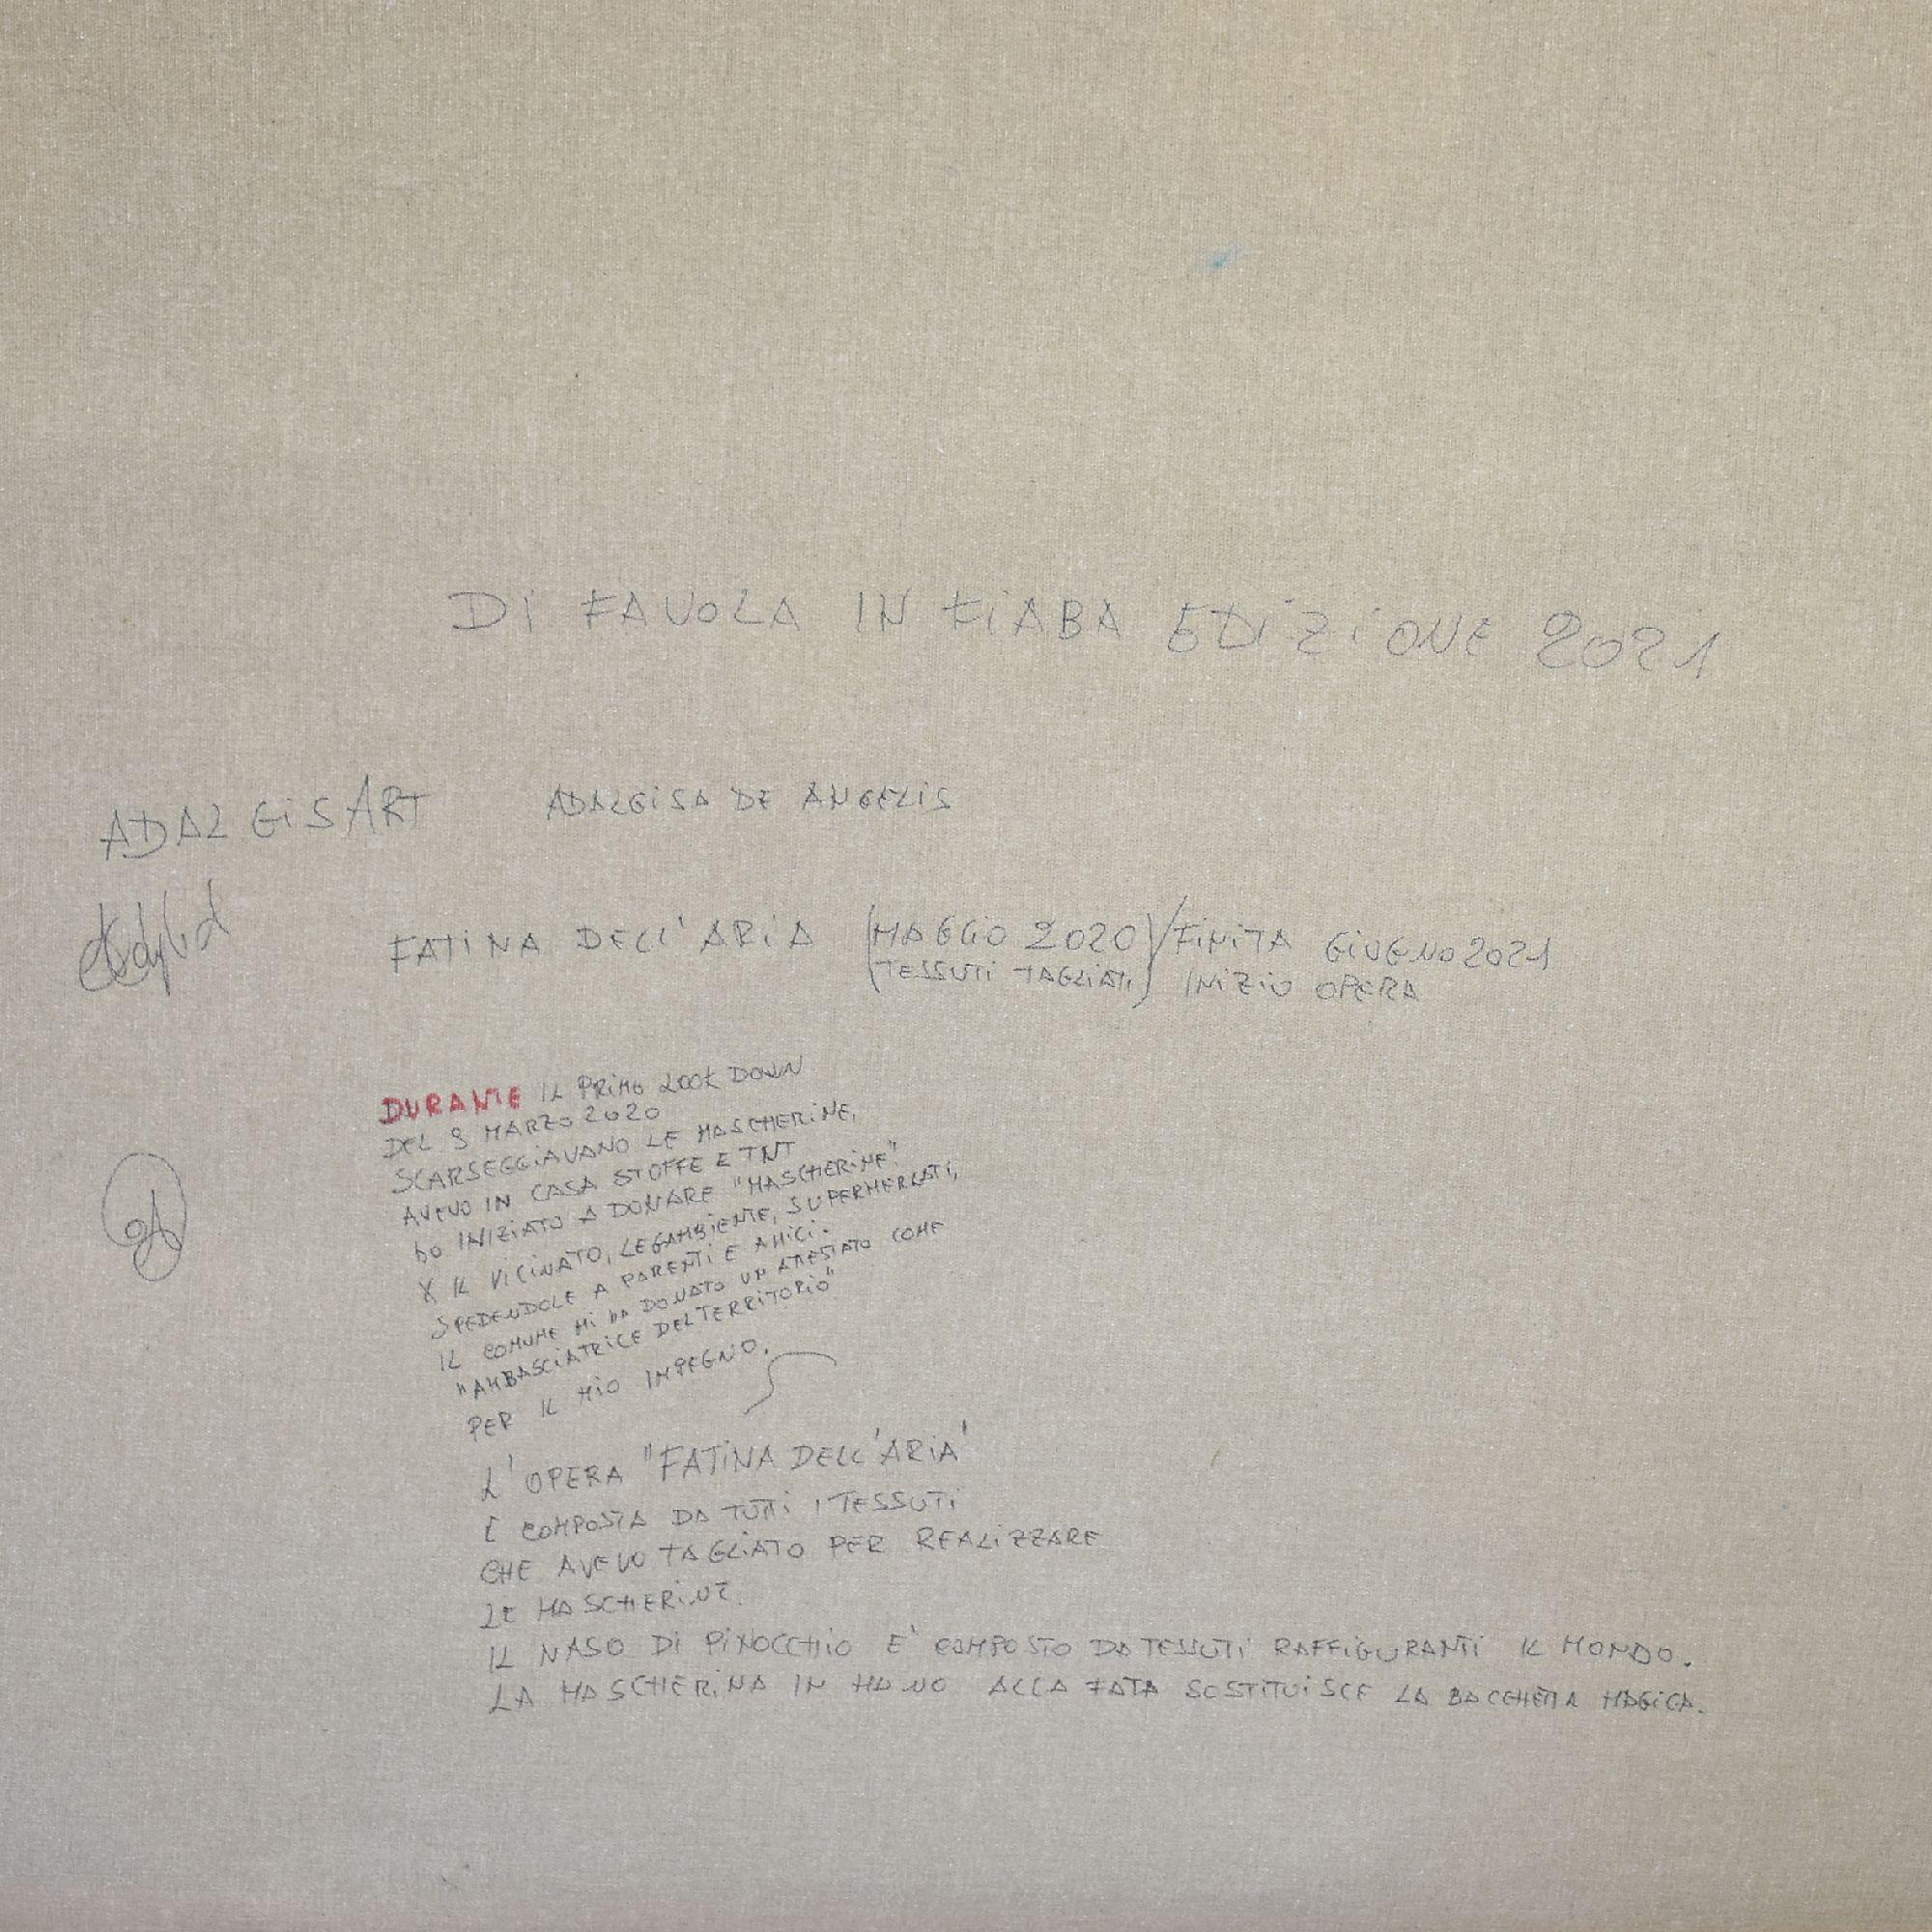 DI FAVOLA IN FIABA EDIZIONE 2021
ADALGISART ADALGISA DE ANGELIS
FATINA DELL'ARIA (MAGGIO 2020)/FINITA GIUGNO 2021
(TESSUTI TAGLIATI) INIZIO OPERA
DURANTE IL PRIMO LOOK DOWN
DEL 9 MARZO 2020
SCARSEGGIAVANO LE MASCHERINE,
AVEVO IN CASA STOFFE E TNT
ho INIZIATO A DONARE "MASCHERINE"
X IL VICINATO, LEGAMBIENTE, SUPERMERCATI,
SPEDENDOLE A PARENTI E AMICI.
IL COMUNE MI ha DONATO UN ATTESTATO COME
"AMBASCIATRICE DEL TERRITORIO"
PER IL MIO IMPEGNO.
L'OPERA "FATINA DELL'ARIA'
È COMPOSTA DA TUTTI I TESSUTI
CHE AVEVO TAGLIATO PER REALIZZARE
LE MASCHERINE.
IL NASO DI PINOCCHIO E' COMPOSTO DA TESSUTI RAFFIGURANTI IL MONDO.
LA MASCHERINA IN MANO ALLA FATA SOSTITUISCE LA BACCHETTA MAGICA.